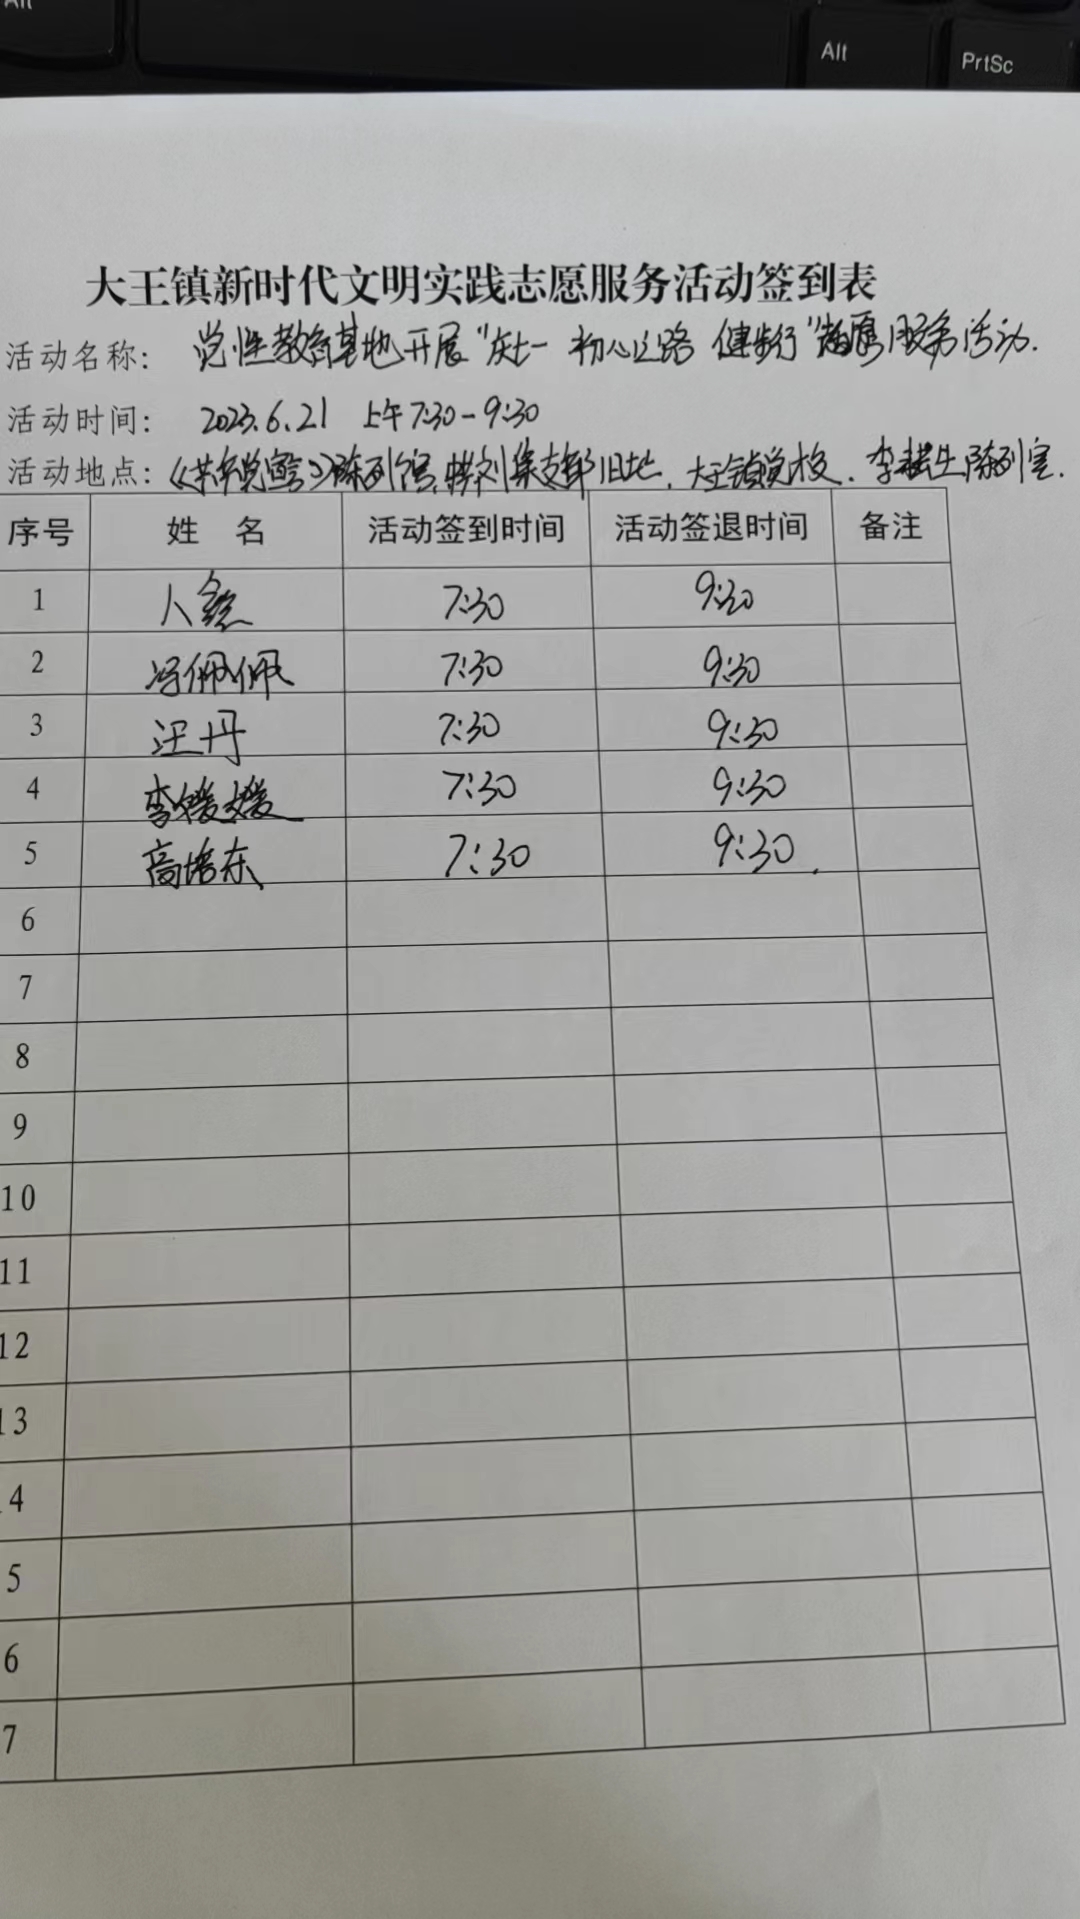 Alt
Alt
PrtSc
大王镇新时代文明实践志愿服务活动签到表
活动名称： 党性教育基地开展"走 初心之路 健步行"志愿服务活动.
活动时间： 2023.6.21 上午7:30-9:30
活动地点：《共产党宣言》陈列馆,刘集支部旧址、大王镇党校、李耘生陈列室.
序号 姓 名 活动签到时间 活动签退时间 备注
1 7:30 9:30
2 冯佩佩 7:30 9:30
3 汪丹 7:30 9:30
4 李媛媛 7:30 9:30
5 高培东 7:30 9:30
6
7
8
9
10
11
12
13
4
5
6
7